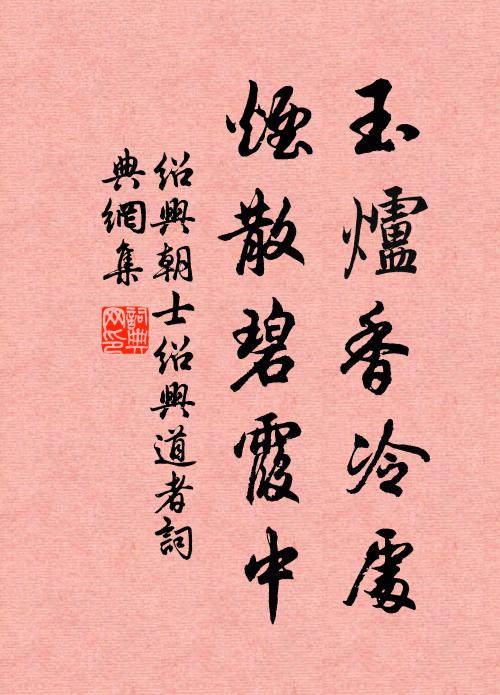 玉爐香冷處
煙散碧霞中
紹興朝士紹興道者詞
典網集
詞典
网印